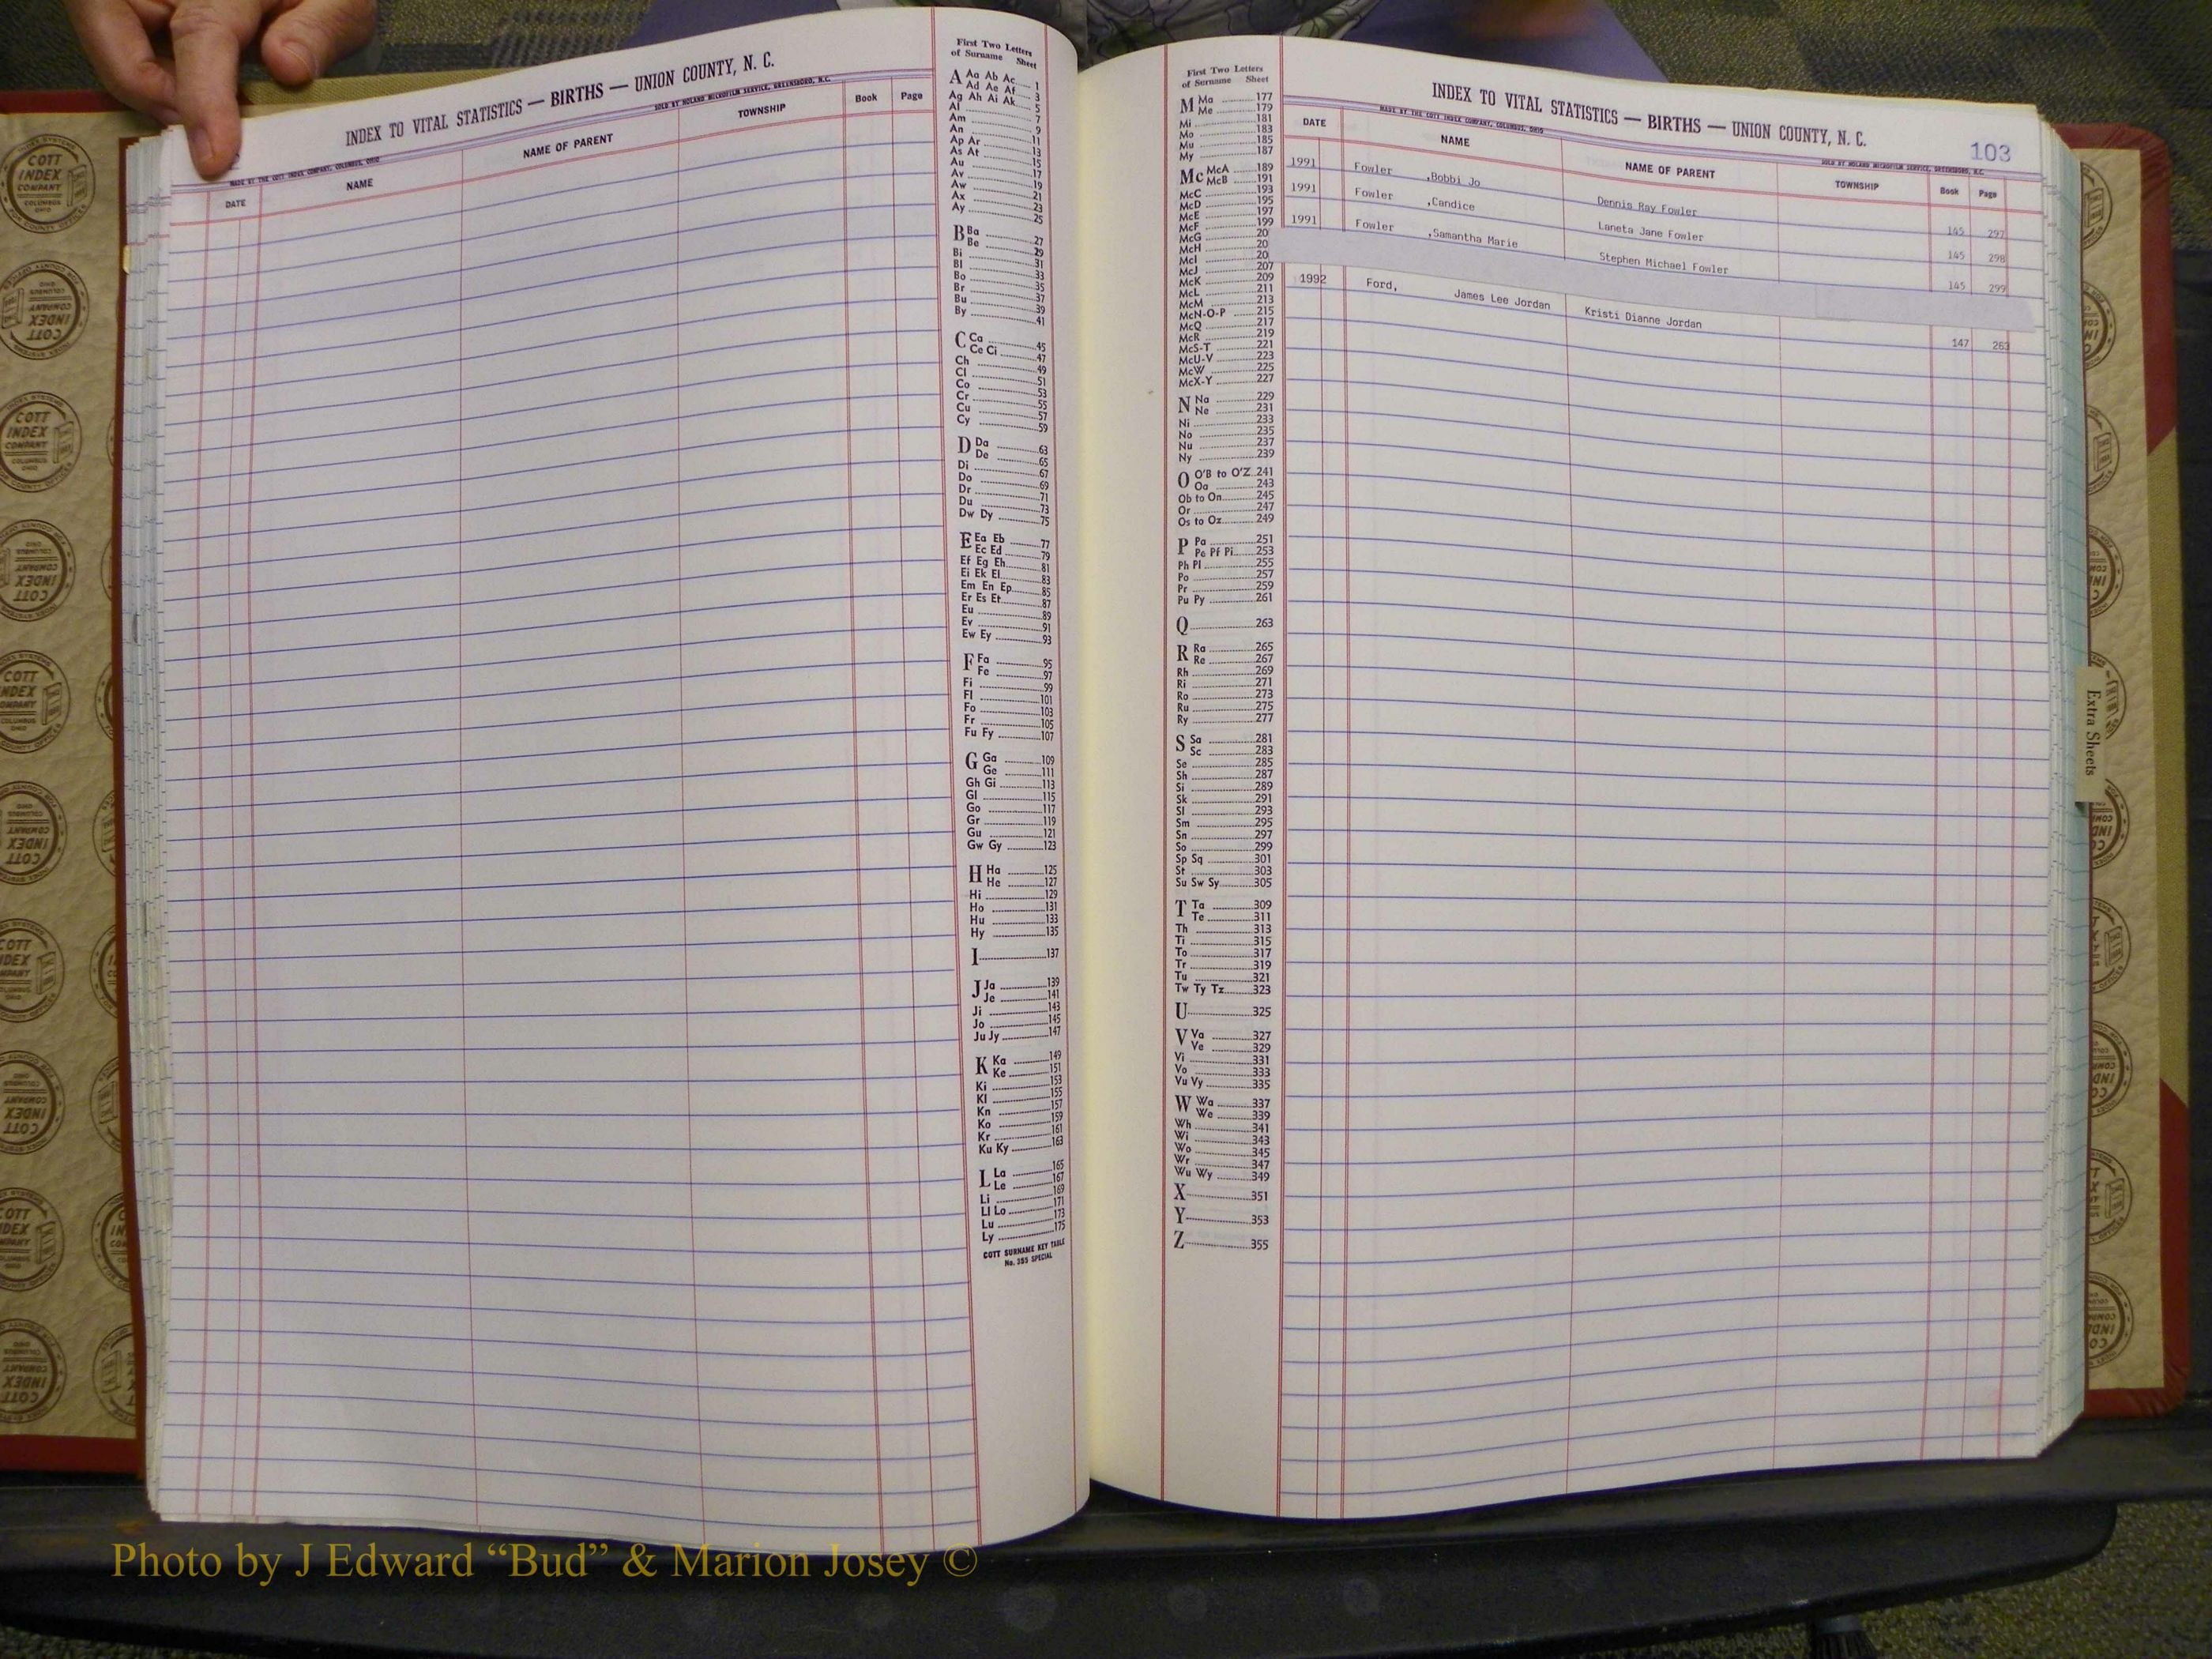 INDEX TO VITAL STATISTICS — BIRTHS — UNION COUNTY, N. C.
MADE BY THE COTT INDEX COMPANY, COLUMBUS, OHIO
SOLD BY NOLAND MICROFILM SERVICE, GREENSBORO, N.C.
DATE NAME NAME OF PARENT TOWNSHIP Book Page
First Two Letters
of Surname Sheet
A Aa Ab Ac 1
Ad Ae Af 3
Ag Ah Ai Ak 5
Al 7
Am 9
An 11
Ap Ar 13
As At 15
Au 17
Av 19
Aw 21
Ax 23
Ay 25
B Ba 27
Be 29
Bi 31
Bl 33
Bo 35
Br 37
Bu 39
By 41
C Ca 45
Ce Ci 47
Ch 49
Cl 51
Co 53
Cr 55
Cu 57
Cy 59
D Da 63
De 65
Di 67
Do 69
Dr 71
Du 73
Dw Dy 75
E Ea Eb 77
Ec Ed 79
Ef Eg Eh 81
Ei Ek El 83
Em En Ep 85
Er Es Et 87
Eu 89
Ev 91
Ew Ey 93
F Fa 95
Fe 97
Fi 99
Fl 101
Fo 103
Fr 105
Fu Fy 107
G Ga 109
Ge 111
Gh Gi 113
Gl 115
Go 117
Gr 119
Gu 121
Gw Gy 123
H Ha 125
He 127
Hi 129
Ho 131
Hu 133
Hy 135
I 137
J Ja 139
Je 141
Ji 143
Jo 145
Ju Jy 147
K Ka 149
Ke 151
Ki 153
Kl 155
Kn 157
Ko 159
Kr 161
Ku Ky 163
L La 165
Le 167
Li 169
Ll Lo 171
Lu 173
Ly 175
COTT SURNAME KEY TABLE
No. 355 SPECIAL
First Two Letters
of Surname Sheet
M Ma 177
Me 179
Mi 181
Mo 183
Mu 185
My 187
Mc McA 189
McB 191
McC 193
McD 195
McE 197
McF 199
McG 20
McH 20
McI 20
McJ 207
McK 209
McL 211
McM 213
McN-O-P 215
McQ 217
McR 219
McS-T 221
McU-V 223
McW 225
McX-Y 227
N Na 229
Ne 231
Ni 233
No 235
Nu 237
Ny 239
O O'B to O'Z 241
Oa 243
Ob to On 245
Or 247
Os to Oz 249
P Pa 251
Pe Pf Pi 253
Ph Pl 255
Po 257
Pr 259
Pu Py 261
Q 263
R Ra 265
Re 267
Rh 269
Ri 271
Ro 273
Ru 275
Ry 277
S Sa 281
Sc 283
Se 285
Sh 287
Si 289
Sk 291
Sl 293
Sm 295
Sn 297
So 299
Sp Sq 301
St 303
Su Sw Sy 305
T Ta 309
Te 311
Th 313
Ti 315
To 317
Tr 319
Tu 321
Tw Ty Tz 323
U 325
V Va 327
Ve 329
Vi 331
Vo 333
Vu Vy 335
W Wa 337
We 339
Wh 341
Wi 343
Wo 345
Wr 347
Wu Wy 349
X 351
Y 353
Z 355
INDEX TO VITAL STATISTICS — BIRTHS — UNION COUNTY, N. C.
103
MADE BY THE COTT INDEX COMPANY, COLUMBUS, OHIO
SOLD BY NOLAND MICROFILM SERVICE, GREENSBORO, N.C.
DATE NAME NAME OF PARENT TOWNSHIP Book Page
1991 Fowler ,Bobbi Jo Dennis Ray Fowler 145 297
1991 Fowler ,Candice Laneta Jane Fowler 145 298
1991 Fowler ,Samantha Marie Stephen Michael Fowler 145 299
1992 Ford, James Lee Jordan Kristi Dianne Jordan 147 263
Extra Sheets
COTT
INDEX
COMPANY
COLUMBUS
OHIO
Photo by J Edward “Bud” & Marion Josey ©